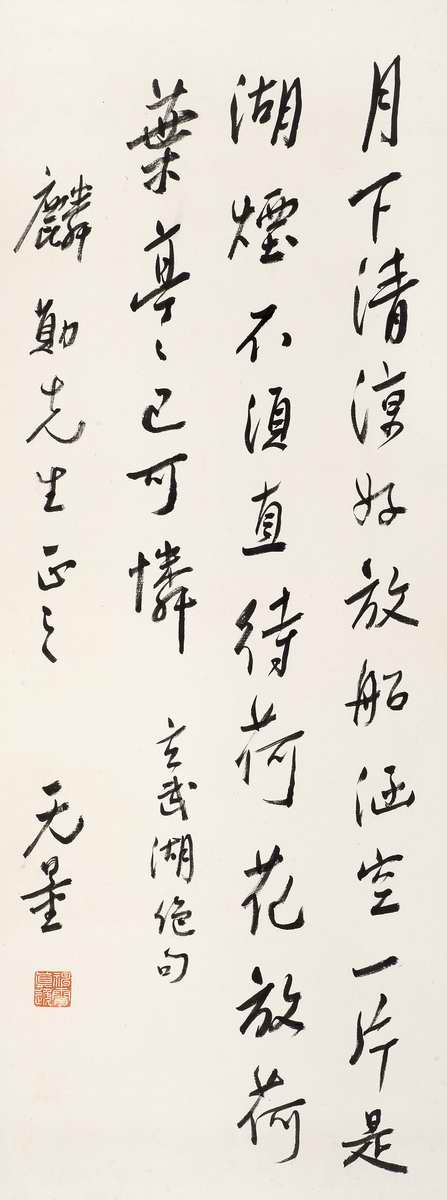 月下清涼好放船涵空一片是
湖煙不須直待荷花放荷
葉亭〻已可憐
玄武湖絕句
麟勛先生正之
无量